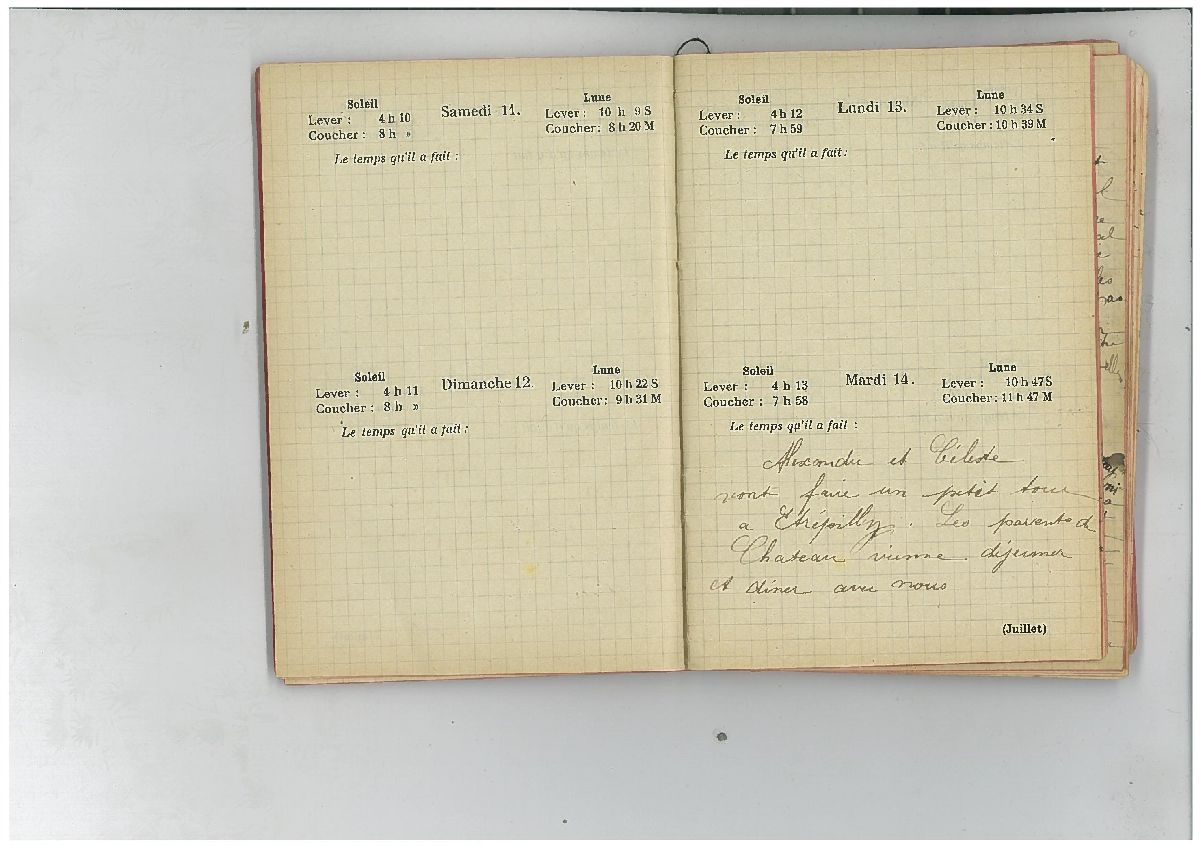 Soleil
Lever : 4 h 10
Coucher : 8 h »
Samedi 11.
Lune
Lever : 10 h 9 S
Coucher : 8 h 20 M
Le temps qu'il a fait :
Soleil
Lever : 4 h 11
Coucher : 8 h »
Dimanche 12.
Lune
Lever : 10 h 22 S
Coucher : 9 h 31 M
Le temps qu'il a fait :
Soleil
Lever : 4 h 12
Coucher : 7 h 59
Lundi 13.
Lune
Lever : 10 h 34 S
Coucher : 10 h 39 M
Le temps qu'il a fait :
Soleil
Lever : 4 h 13
Coucher : 7 h 58
Mardi 14.
Lune
Lever : 10 h 47 S
Coucher : 11 h 47 M
Le temps qu'il a fait :
Alexandre et Céleste
vont faire un petit tour
a Etrépilly. Les parents d
Chateau vienne déjeuner
et diner avec nous
(Juillet)